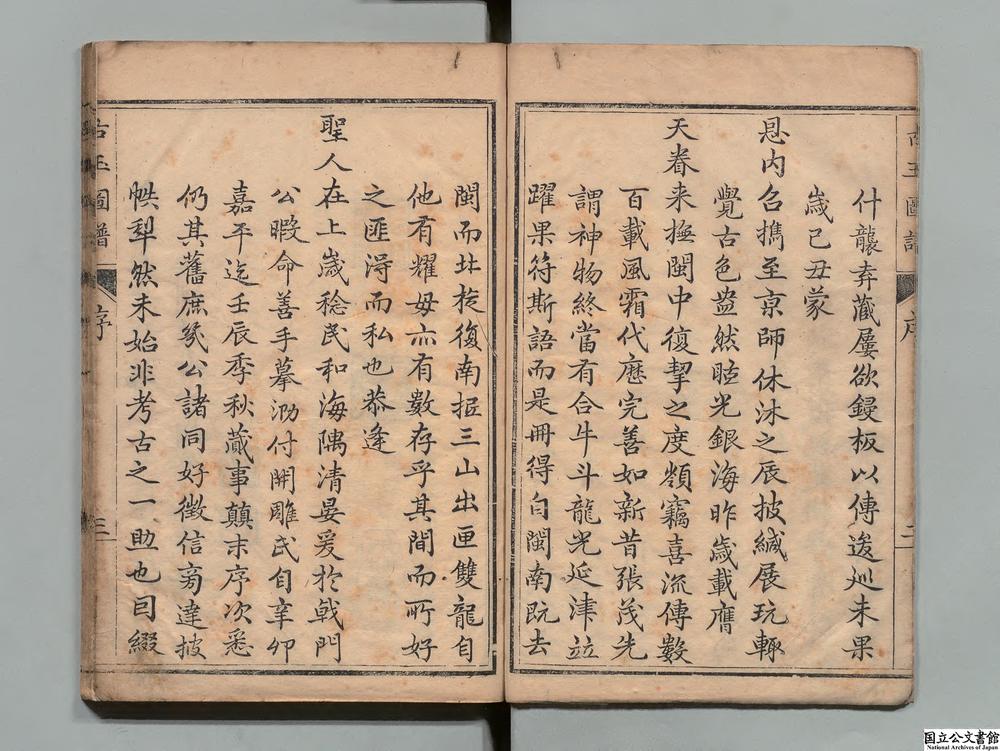 什襲弆藏屢欲鋟板以傳逡巡未果
歲己丑蒙
恩內召攜至京師休沐之辰披緘展玩輒
覺古色盎然眩光銀海昨歲載膺
天眷来撫閩中復挈之度嶺竊喜流傳數
百載風霜代歷完善如新昔張茂先
謂神物終當有合牛斗龍光延津竝
躍果符斯語而是冊得自閩南既去
古玉圖譜
序
二
閩而北旋復南掋三山出匣雙龍自
他有耀毋亦有數存乎其間而所好
之匪淂而私也恭逢
聖人在上歲稔民和海隅清晏爰於戟門
公暇命善手摹泐付開雕氏自辛卯
嘉平迄壬辰季秋蕆事顛末序次悉
仍其舊庶幾公諸同好徵信旁達披
帙犁然未始非考古之一助也因綴
古玉圖譜
序
三
国立公文書館
National Archives of Japan